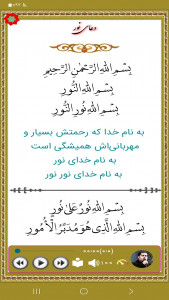 دعای نور
بِسْمِ اللهِ الرَّحْمٰنِ الرَّحيمِ
بِسْمِ اللهِ النُّورِ
بِسْمِ اللهِ نُورِ النُّورِ
به نام خدا که رحمتش بسیار و
مهربانی‌اش همیشگی است
به نام خدای نور
به نام خدای نور نور
بِسْمِ اللهِ نُورٌ عَلىٰ نُورٍ
بِسْمِ اللهِ الَّذِي هُوَ مُدَبِّرُ الْأُمُورِ